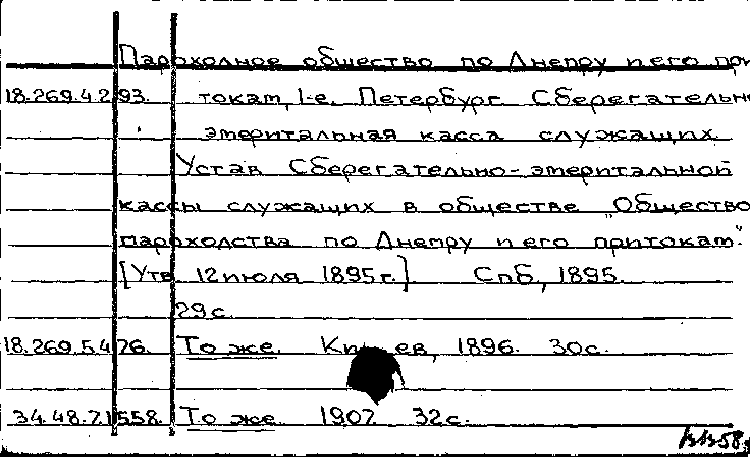 Пароходное общество по Днепру и его при
18.269.4.293. токам, 1-е. Петербург Сберегательн
эмеритальная касса служащих.
Устав Сберегательно-эмеритальной
кассы служащих в обществе „Общество
пароходства по Днепру и его притокам".
[Утв. 12 июля 1895 г.] Спб, 1895.
29 с.
18.269.5.476. То же. Киев, 1896. 30 с.
34.48.7.1558. То же. 1907. 32 с.